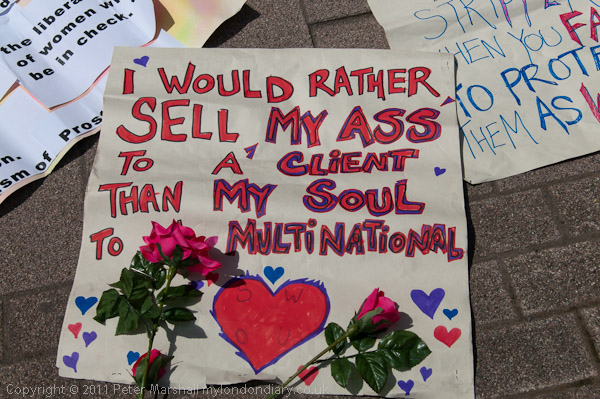 the liberal
of women w
be in check.
on.
of Pros
ism of
I WOULD RATHER
SELL MY ASS
TO A CLIENT
THAN MY SOUL
TO MULTINATIONAL
STRIPP
WHEN YOU FA
TO PROTE
THEM AS W
Copyright © 2011 Peter Marshall mylondondiary.co.uk